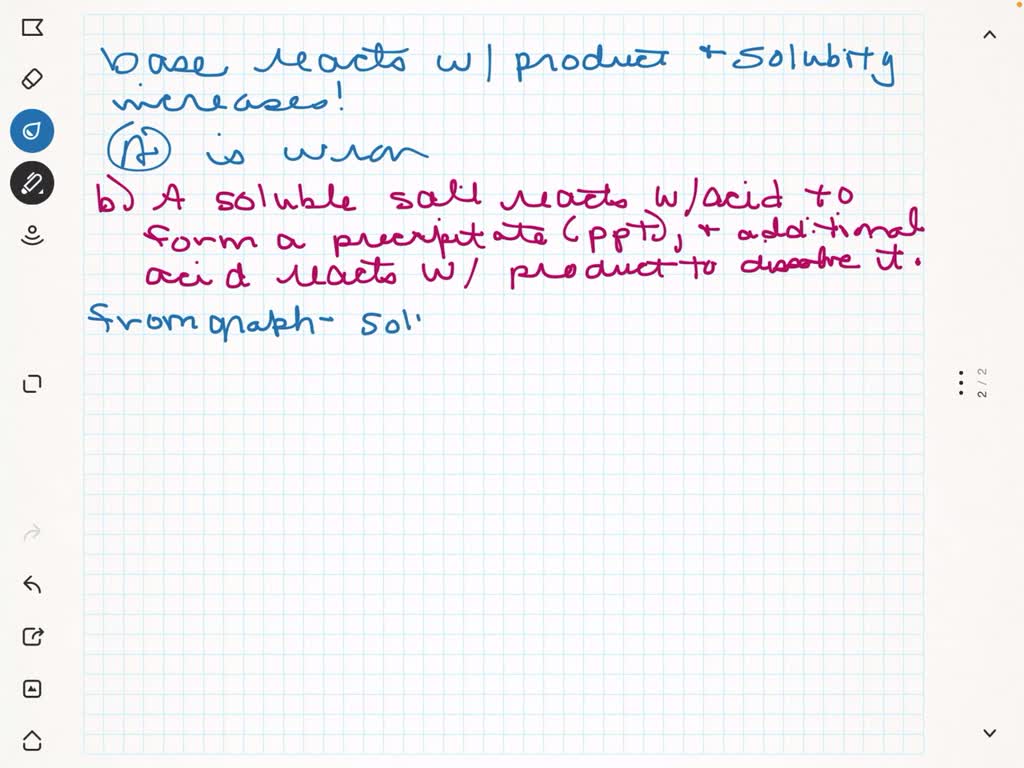 base reacts w/ product + solubity
increases!
A is wron
b) A soluble salt reacts w/acid to
form a precipitate (ppt), + additional
acid reacts w/ product to dissolve it.
from graph- sol
2/2